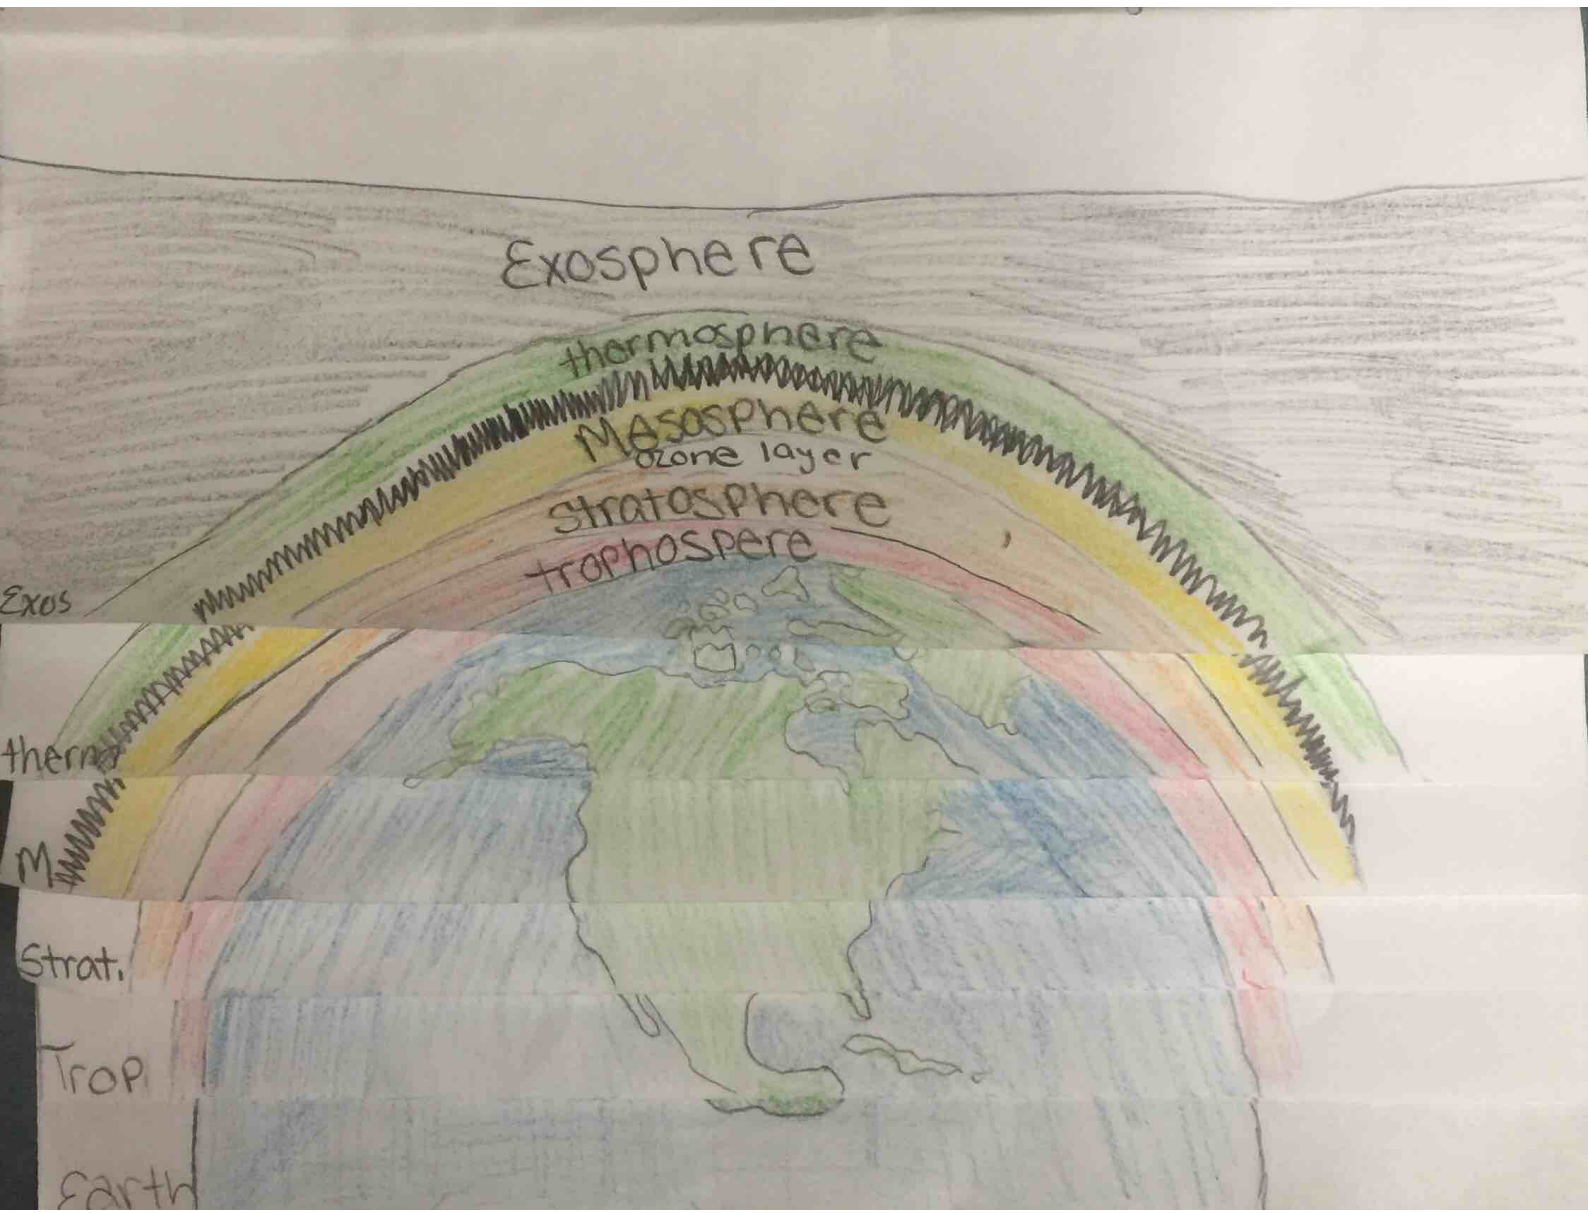 Exosphere
thermosphere
Mesosphere
ozone layer
stratosphere
trophospere
Exos
therm
M
Strat.
Trop.
Earth